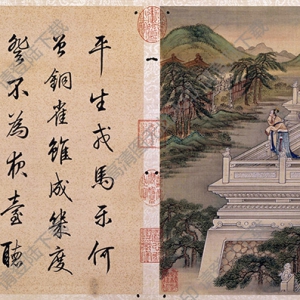 平生戎馬樂何
曾銅雀雖成幾度
登不為夜臺聽